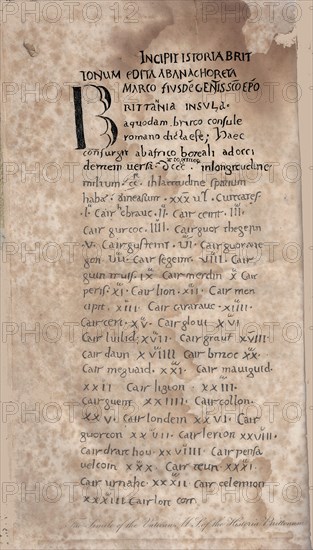 INCIPIT ISTORIA BRIT
TONUM EDITA AB ANACHORETA
MARCO
BRITTANIA INSULA.
a quodam bruto consule
romano dicta est; Haec
consurgit ab africo boreali ad occi
dentem versa. dccc in longitudine
milium. cc. in latitudine spatium
habet
.I. Cair ebrauc. II. Cair ceint. III.
Cair gurcoc. IIII. Cair guorthegern
.V. Cair gusteint. VI. Cair guorane
gon. VII. Cair segeint. VIII. Cair.
guin truis. IX. Cair merdin X Cair
peris. XI. Cair lion. XII. Cair men
cipit. XIII. Cair caratauc. XIIII.
Cair ceri. XV. Cair gloui XVI
Cair luilid. XVII. Cair graut XVIII.
Cair daun XVIIII Cair britoc XX.
Cair meguaid. XXI. Cair mauiguid.
XXII Cair ligion. XXIII.
Cair guent XXIIII. Cair collon.
XXV. Cair londein XXVI. Cair
guorcon XXVII. Cair lerion XXVIII.
Cair draithou XXVIIII. Cair pensa
uelcoin XXX. Cair teun XXXI.
Cair urnahc XXXII Cair celemion
XXXIII Cair loit coit.
of the Vatican M.S. of the Historia Brittonum